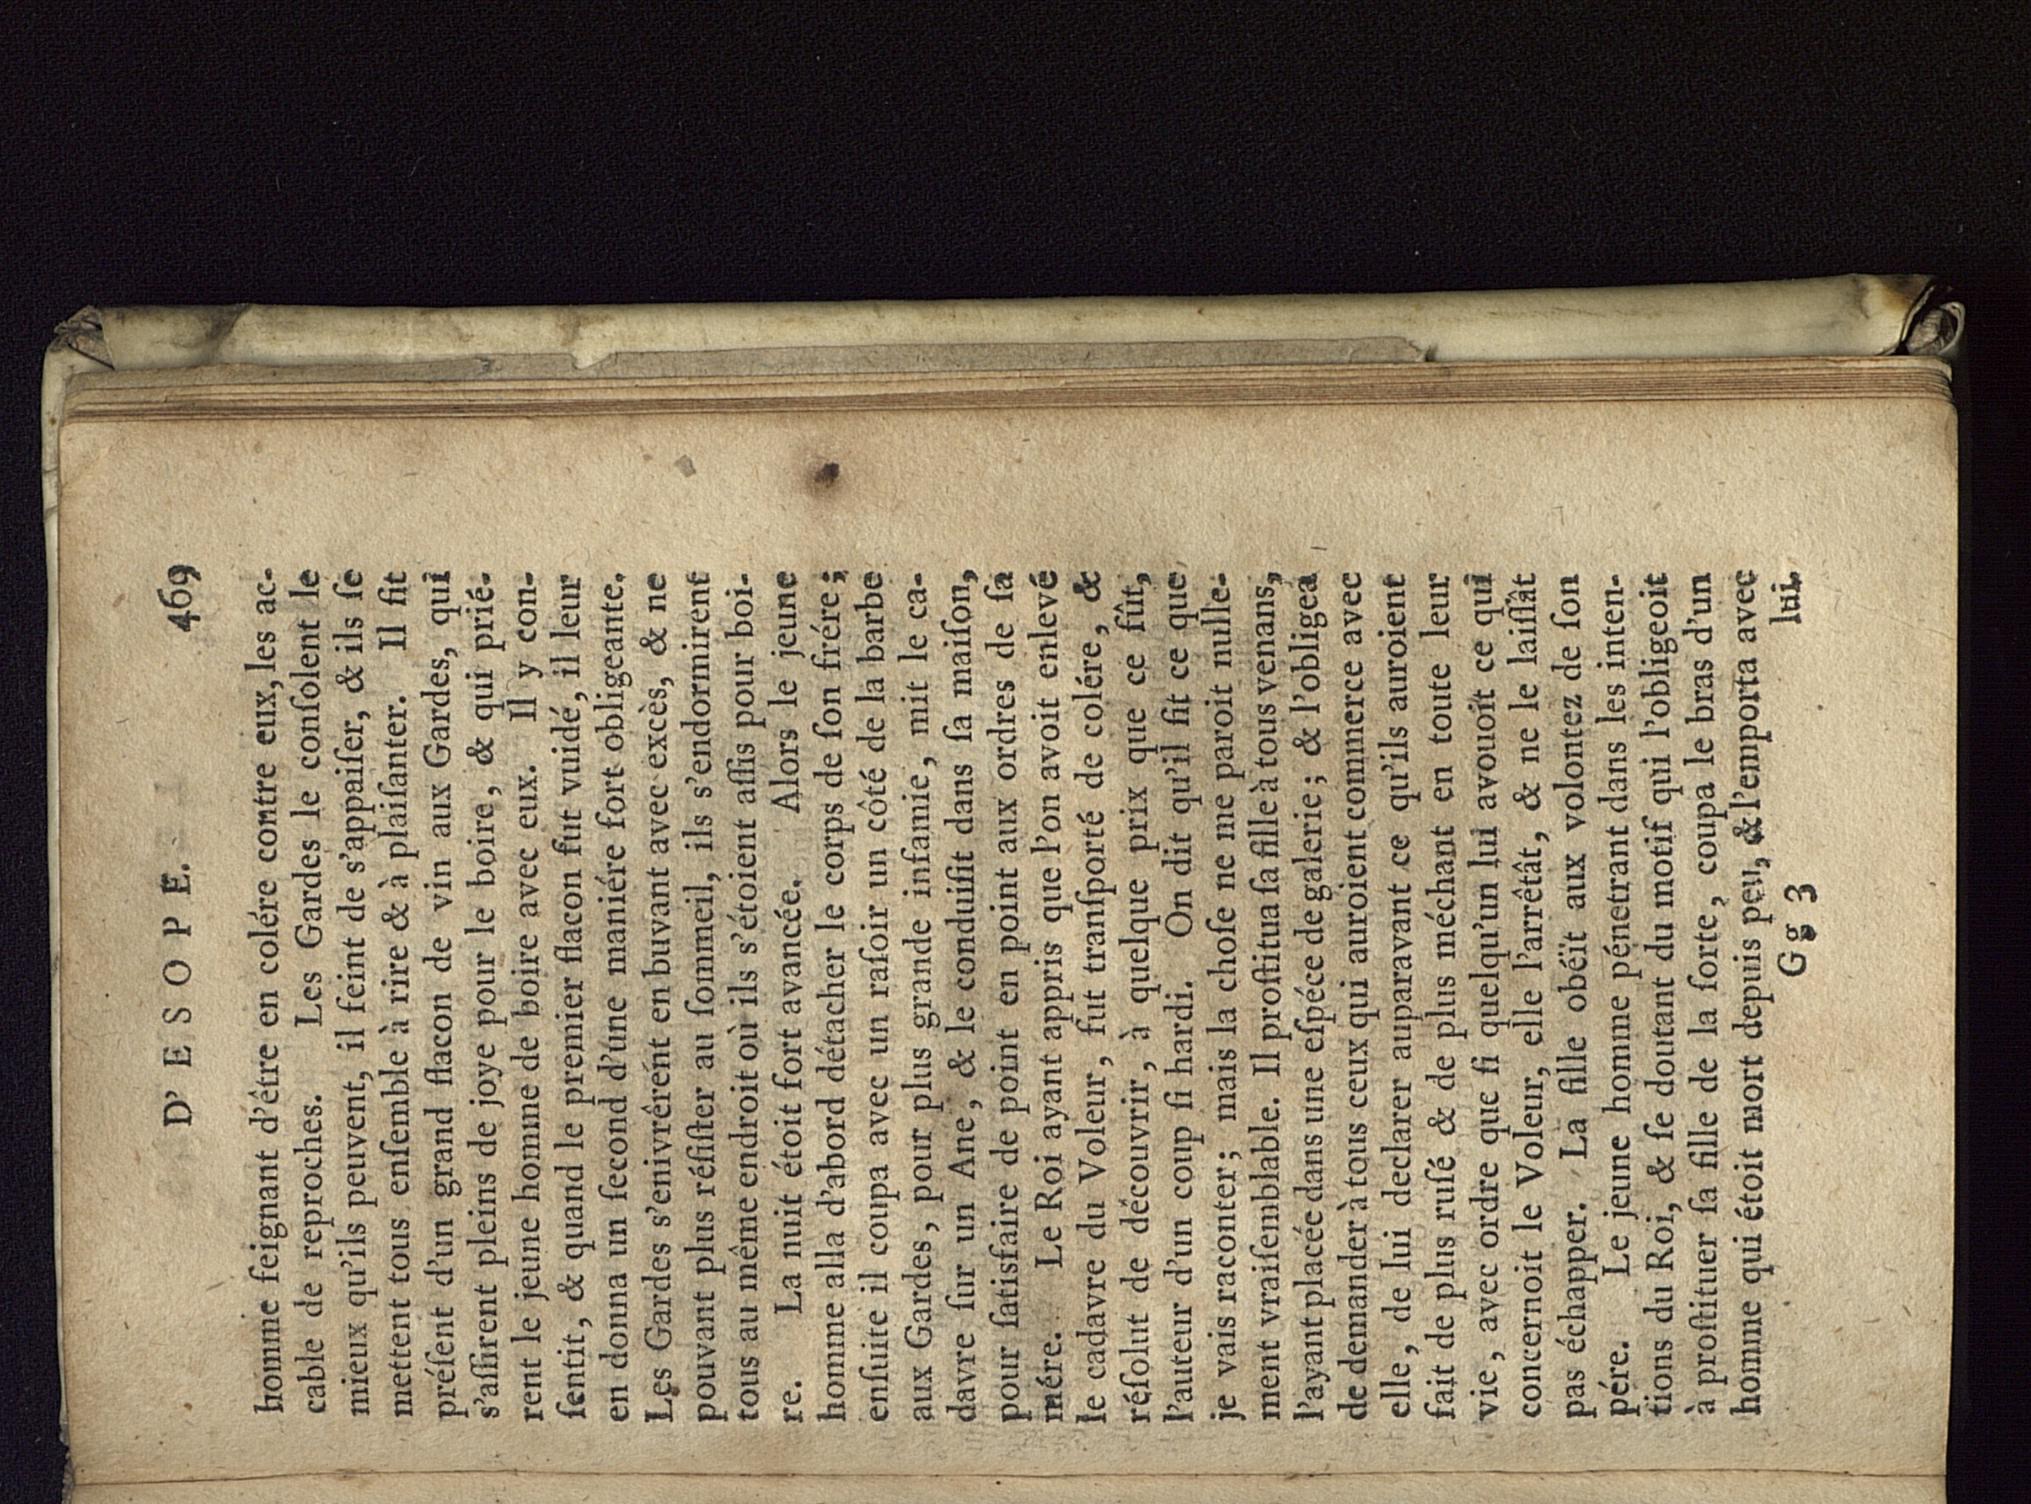 D' E S O P E. 469
homme feignant d'être en colére contre eux, les ac-
cable de reproches. Les Gardes le conſolent le
mieux qu'ils peuvent, il feint de s'appaiſer, & ils ſe
mettent tous enſemble à rire & à plaiſanter. Il fit
préſent d'un grand flacon de vin aux Gardes, qui
s'aſſirent pleins de joye pour le boire, & qui prié-
rent le jeune homme de boire avec eux. Il y con-
ſentit, & quand le premier flacon fut vuidé, il leur
en donna un ſecond d'une maniére fort obligeante.
Les Gardes s'enivrérent en buvant avec excès, & ne
pouvant plus réſiſter au ſommeil, ils s'endormirent
tous au même endroit où ils s'étoient aſſis pour boi-
re. La nuit étoit fort avancée. Alors le jeune
homme alla d'abord détacher le corps de ſon frére;
enſuite il coupa avec un raſoir un côté de la barbe
aux Gardes, pour plus grande infamie, mit le ca-
davre ſur un Ane, & le conduiſit dans ſa maiſon,
pour ſatisfaire de point en point aux ordres de ſa
mére. Le Roi ayant appris que l'on avoit enlevé
le cadavre du Voleur, fut tranſporté de colére, &
réſolut de découvrir, à quelque prix que ce fût,
l'auteur d'un coup ſi hardi. On dit qu'il fit ce que
je vais raconter; mais la choſe ne me paroit nulle-
ment vraiſemblable. Il proſtitua ſa fille à tous venans,
l'ayant placée dans une eſpéce de galerie; & l'obligea
de demander à tous ceux qui auroient commerce avec
elle, de lui declarer auparavant ce qu'ils auroient
fait de plus ruſé & de plus méchant en toute leur
vie, avec ordre que ſi quelqu'un lui avouoit ce qui
concernoit le Voleur, elle l'arrêtât, & ne le laiſſât
pas échapper. La fille obéït aux volontez de ſon
pére. Le jeune homme pénetrant dans les inten-
tions du Roi, & ſe doutant du motif qui l'obligeoit
à proſtituer ſa fille de la ſorte, coupa le bras d'un
homme qui étoit mort depuis peu, & l'emporta avec
Gg 3 lui,